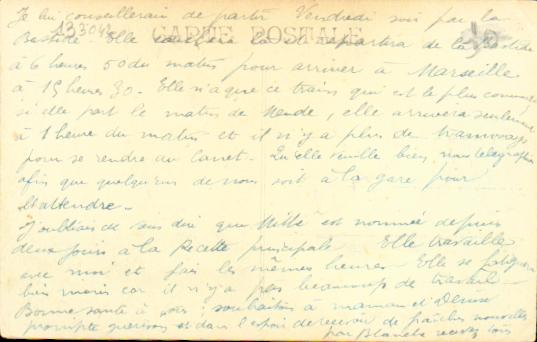 Je lui conseillerais de partir Vendredi soir par la
133048
CARTE POSTALE
Bastide Elle couchera là et repartira de la Bastide
à 6 heures 50 du matin pour arriver à Marseille
à 15 heures 30. Elle n'a que ce train qui est le plus commode
si elle part le matin de Mende, elle arrivera seulement
à 1 heure du matin et il n'y a plus de tramways
pour se rendre au Canet. Qu'elle veuille bien nous télégraphier
afin que quelqu'un de nous soit à la gare pour
l'attendre.
J'oubliais de vous dire que Mille est nommée depuis
deux jours à la Recette principale Elle travaille
avec moi et fait les mêmes heures Elle se fatiguera
bien moins car il n'y a pas beaucoup de travail
Bonne santé à vous; souhaitons à maman et Denise
prompte guérison et dans l'espoir de recevoir de fraîches nouvelles
par Blanche recevez tous